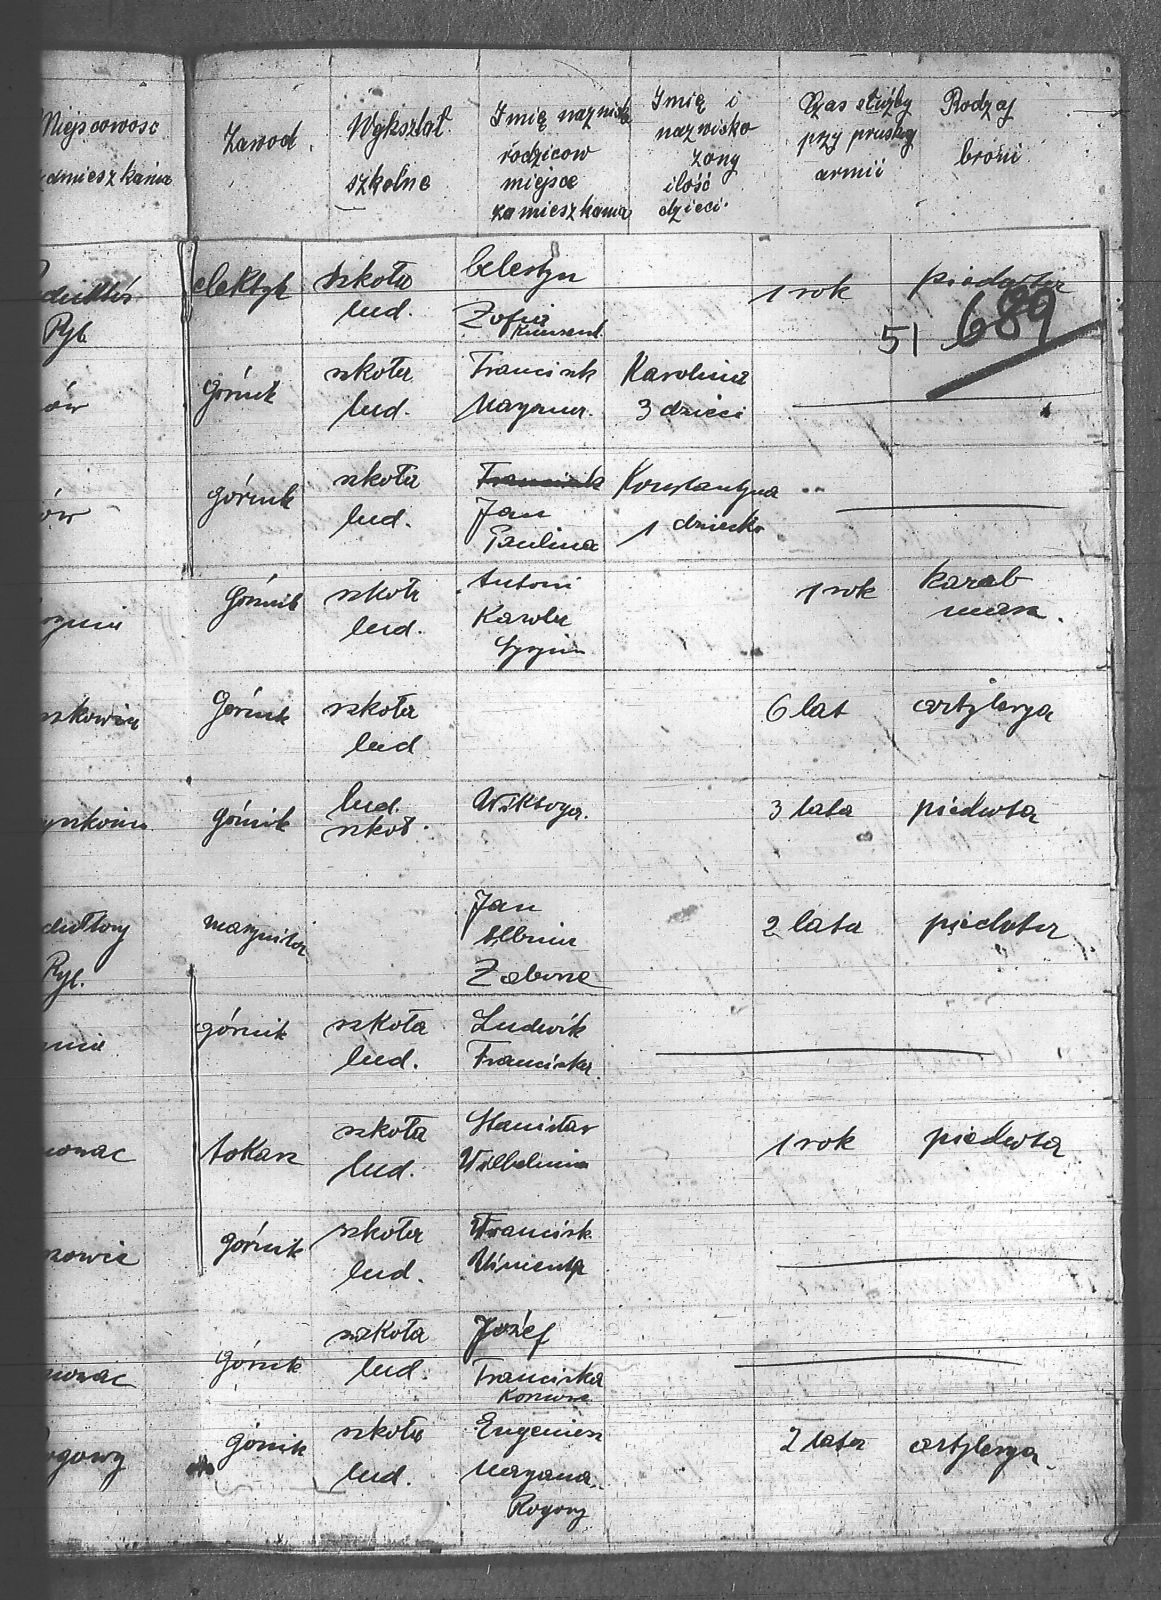 Miejscowość
zamieszkania
Zawod.
Wykształ.
szkolne
Imię nazwisk
rodzicow
miejsce
zamieszkania
Imię i
nazwisko
żony
ilość
dzieci.
Czas służby
przy pruskej
armii
Rodzaj
broni
Ryb.
elektyk
szkoła
lud.
Celestyn
Zofia
1 rok
piechota
51 689
ów
górnik
szkoła
lud.
Franciszk
Maryanna.
Karolina
3 dzieci
ów
górnik
szkoła
lud.
Franciszk
Jan
Paulina
Konstantyna
1 dziecko
górnik
szkoła
lud.
Antoni
Karola
1 rok
karab
masz.
szkowice
Górnik
szkoła
lud
6 lat
artylerya
górnik
lud.
szkoł.
Wiktorya.
3 lata
piechota
dułtowy
Ryb.
maszynista
Jan
Albina
Zabrze
2 lata
piechota
górnik
szkoła
lud.
Ludwik
Franciszka.
tokarz
szkoła
lud.
Stanisław
Wilhelmina
1 rok
piechota
górnik
szkoła
lud.
Franciszk
Wincenta
górnik
szkoła
lud.
Józef
Franciszka
ogowy
górnik
szkoła
lud.
Eugeniusz
Maryana.
Rogowy
2 lata
artylerya.